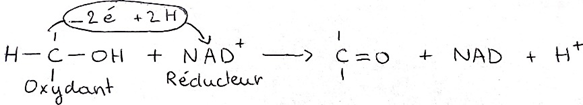 –2é +2H
H–C–OH + NAD⁺ → C=O + NAD + H⁺
Oxydant Réducteur